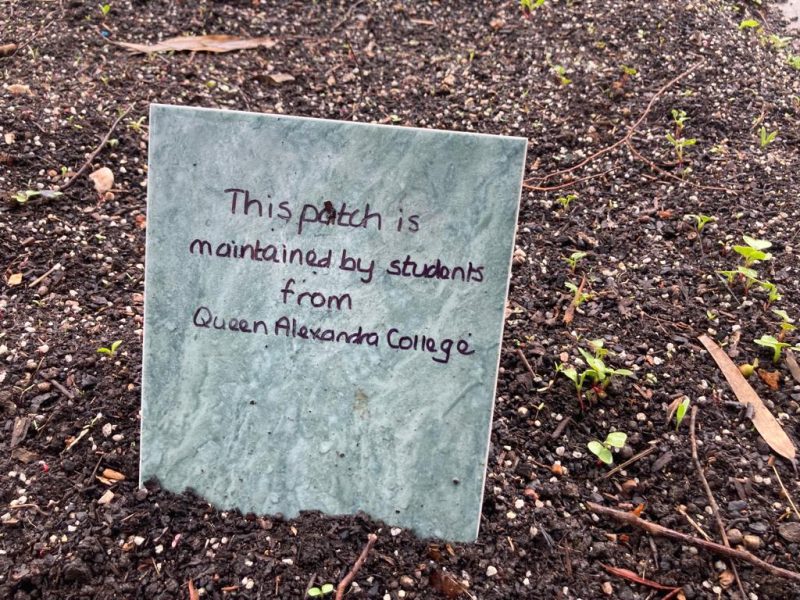 This patch is
maintained by students
from
Queen Alexandra College